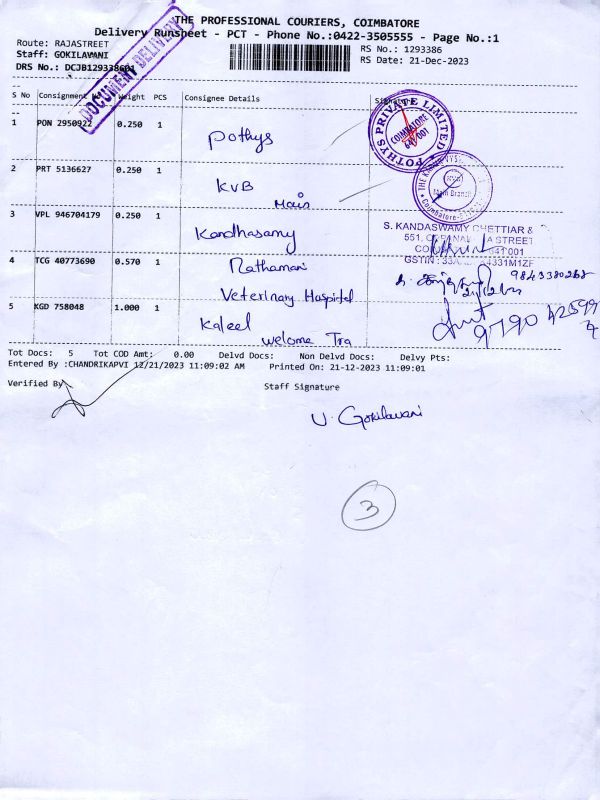 THE PROFESSIONAL COURIERS, COIMBATORE
Delivery Runsheet - PCT - Phone No.:0422-3505555 - Page No.:1
Route: RAJASTREET
RS No.: 1293386
Staff: GOKILAVANI
RS Date: 21-Dec-2023
DRS No.: DCJB129338601
DOCUMENT DELIVERY
S No Consignment Weight PCS Consignee Details Signature
1 PON 2950922 0.250 1 Pothys
POTHYS PRIVATE LIMITED
COIMBATORE
641 001
2 PRT 5136627 0.250 1 KVB
Main
Main Branch
Coimbatore
3 VPL 946704179 0.250 1 Kandhasamy
S. KANDASWAMY CHETTIAR &
551, STREET
4 TCG 40773690 0.570 1 Rathamani
Veterinary Hospital
GSTIN : 33
9843380268
5 KGD 758048 1.000 1 Kaleel
welcome Tra
Tot Docs: 5 Tot COD Amt: 0.00 Delvd Docs: Non Delvd Docs: Delvy Pts:
Entered By :CHANDRIKAPVI 12/21/2023 11:09:02 AM Printed On: 21-12-2023 11:09:01
Verified By
Staff Signature
V. Gokilavani
3